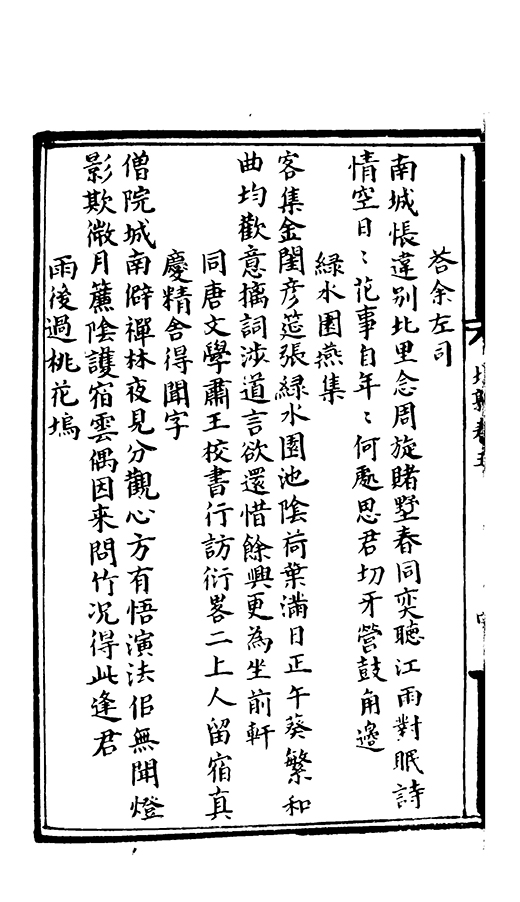 荅余左司
南城悵違別北里念周旋賭墅春同奕聽江雨對眠詩
情空日〻花事自年〻何處思君切牙營鼓角邊
緑水園燕集
客集金閨彦筵張緑水園池陰荷葉滿日正午葵繁和
曲均歡意摛詞涉道言欲還惜餘興更為坐前軒
同唐文學肅王校書行訪衍畧二上人留宿真
慶精舍得聞字
僧院城南僻禪林夜見分觀心方有悟演法但無聞燈
影欺微月簾陰護宿雲偶因来問竹况得此逢君
雨後過桃花塢